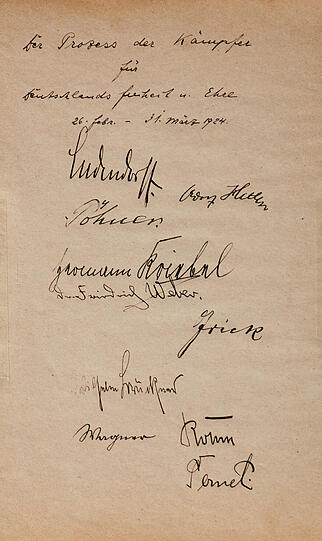 Der Prozess der Kämpfer
für
Deutschlands freiheit u. Ehre
26. febr. – 31. März 1924.
Ludendorff.
Adolf Hitler
Pöhner
Hermann Kriebel
Dr Friedrich Weber.
Frick
Wilhelm Brückner
Wagner
Röhm
Pernet.